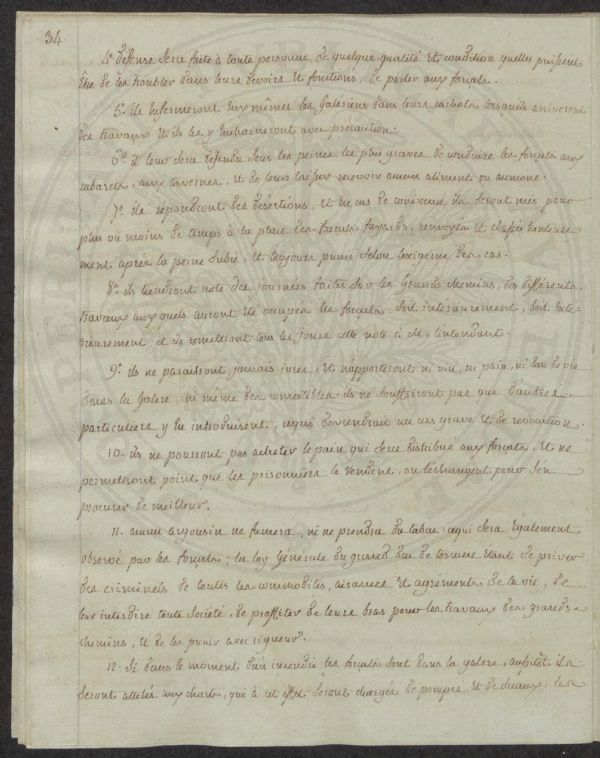 34
4.° defense sera faite à toute personne de quelque qualité et condition quelles puissent
Être de les troubler dans leurs devoirs et fonctions, de parler aux forçats.
5.° ils Enfermeront Eux mêmes les Galériens dans leurs cachots lorsquils arriveront
des travaux Et ils les y Enchaineront avec précaution.
6.° il leur sera defendu sous les peines les plus graves de conduire les forçats aux
cabarets, aux tavernes, et de leur laisser recevoir aucun aliment ou aumone.
7.° ils repondront des desertions, et en cas de connivence ils seront mis pour
plus ou moins de temps à la place des forcats fuyards, renvoyés et chassés honteuse-
ment après la peine subie, Et toujours punis selon lexigence des cas.
8.° ils tiendront note des journées faites sur les Grands chemins, des différents
travaux auxquels auront été occupés les forçats, soit interieurement, soit exte-
rieurement, et ils remettront tous les jours cette note à M. lintendant.
9.° ils ne paraitront jamais ivres, Et n'apporteront ni vin, ni pain, ni Eau de vie
dans la Galere, ni même des comestibles. ils ne souffriront pas que d'autres
particuliers y En introduisent, cequi deviendrait un cas grave Et de revocation.
10. ils ne pourront pas acheter le pain qui sera distribué aux forçats, Et ne
permettront point que les prisonniers le vendent, ou l'échangent pour s'en
procurer de meilleur.
11. aucun argousin ne fumera, ni ne prendra du tabac: cequi sera Egalement
observé par les forçats; la loy Générale du grand duc de toscane étant de priver
des criminels de toutes les commodités, aisances Et agréments de la vie, de
leur interdire toute société, de proffiter de leurs bras pour les travaux des grands
chemins, Et de les punir avec rigueur.
12. Si dans le moment d'un incendie les forçats sont dans la galere, aussitôt ils
seront attelés aux chars, qui à cet effet seront chargés de pompes Et de sceaux, les